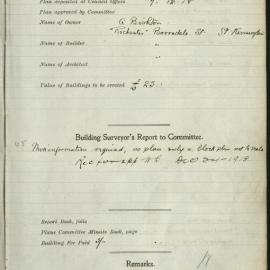 Plan deposited at Council Office 9. 12. 18
Plan approved by Committee
Name of Owner G Brighton
"Rochester" Borrodale St. St Kensington
Name of Builder "
Name of Architect
Value of Buildings to be erected £ 25
Building Surveyor's Report to Committee.
More information required, no plan only a block plan not to scale
Rec for app
Report Book, folio
Plans Committee Minute Book, page
Building Fee Paid 5/-
Remarks.